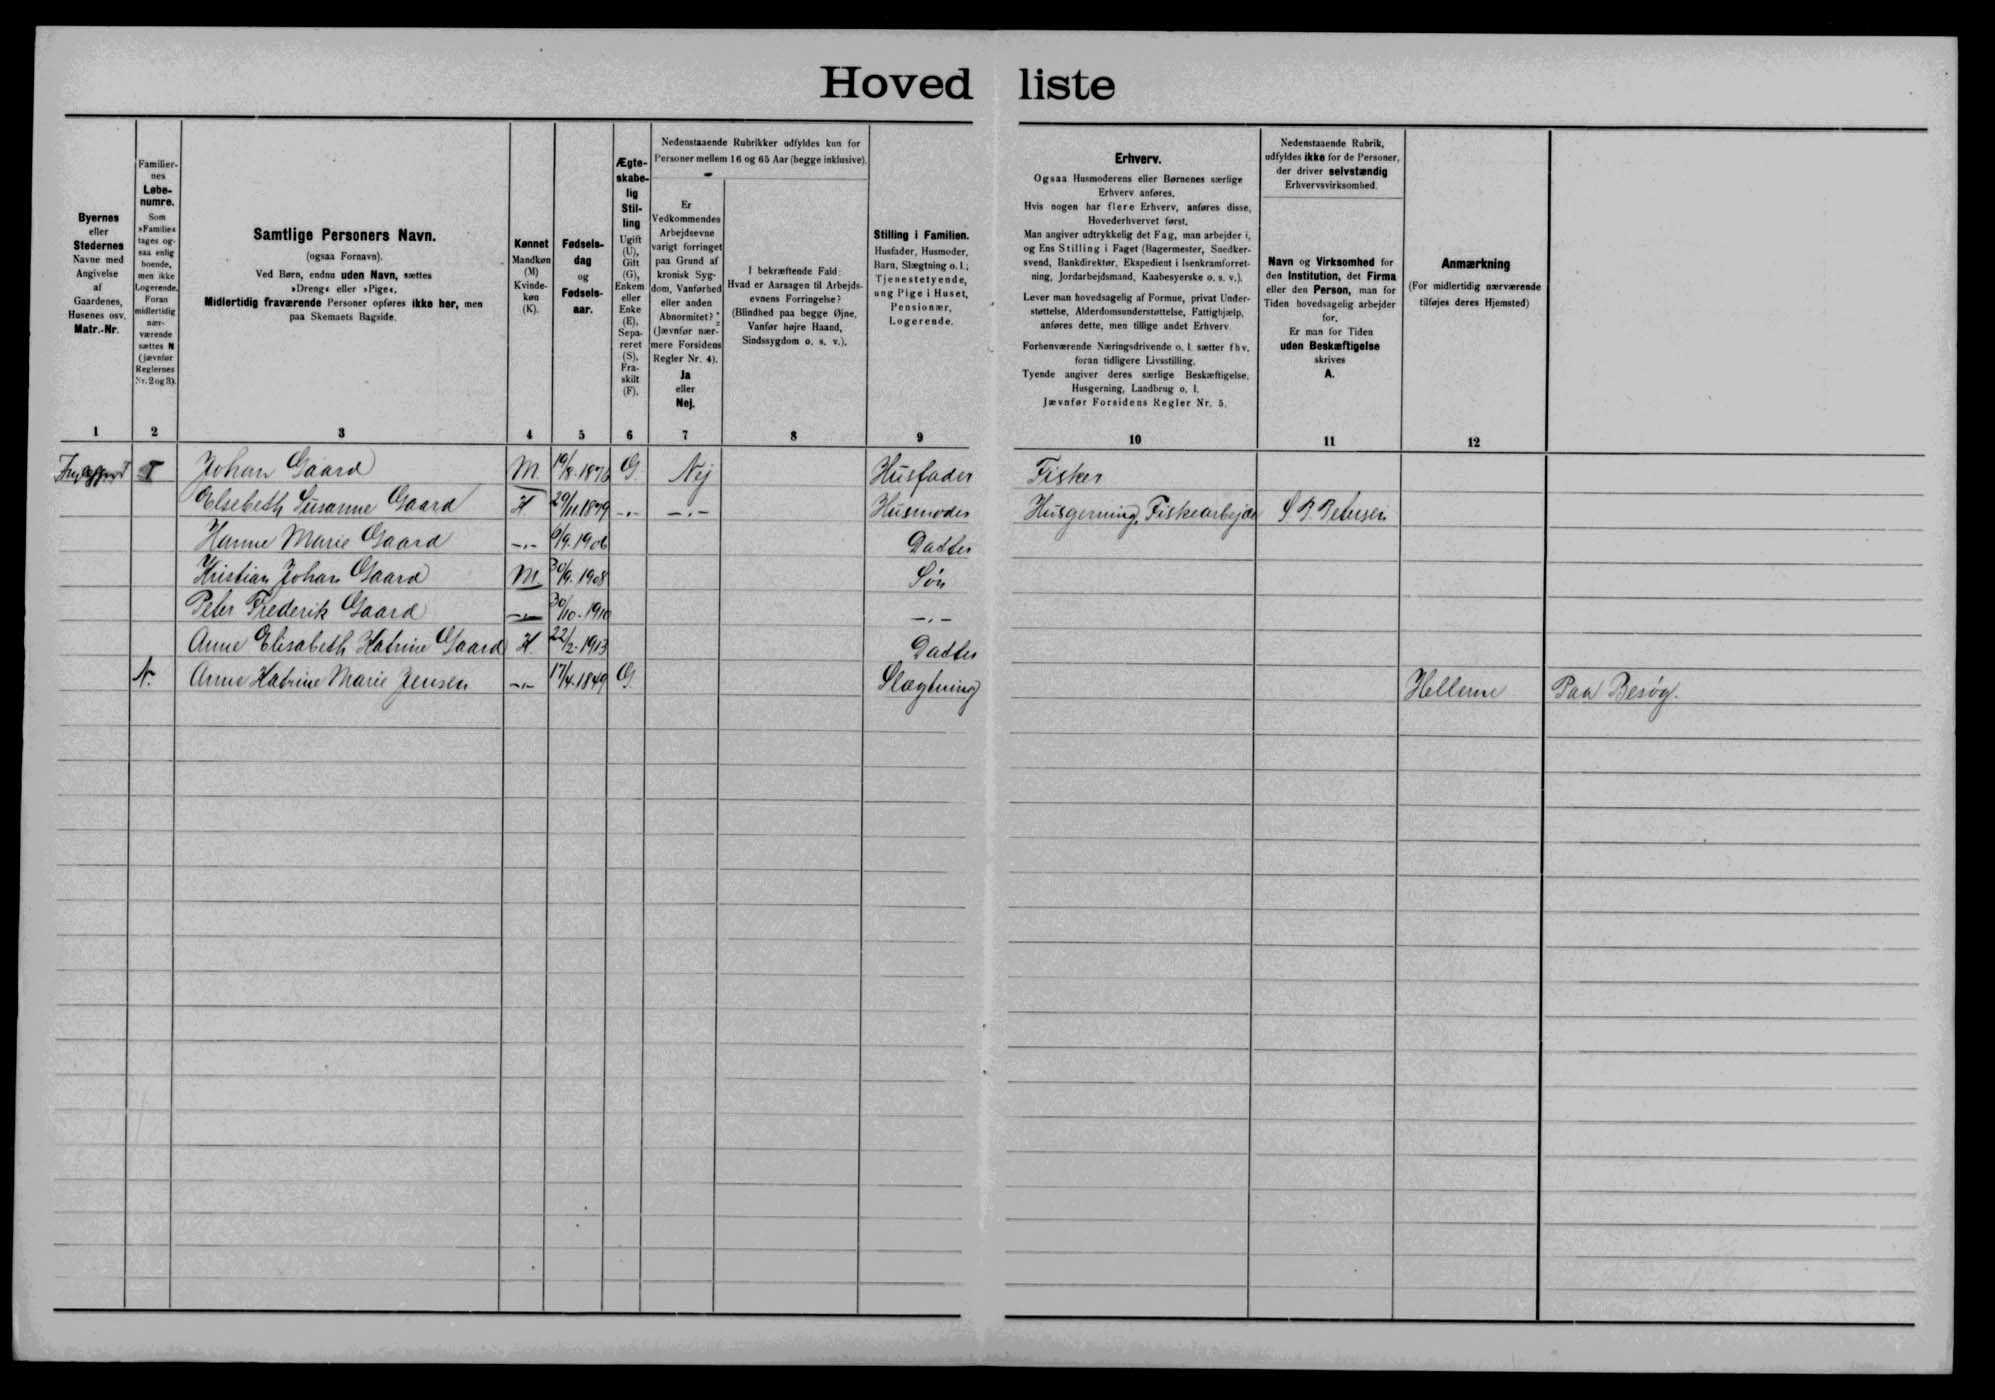 Hoved liste
Byernes
eller
Stedernes
Navne med
Angivelse
af
Gaardenes,
Husenes osv.
Matr.-Nr.
Familier-
nes
Løbe-
numre.
Som
»Familie«
tages og-
saa enlig
boende,
men ikke
Logerende.
Foran
midlertidig
nær-
værende
sættes N
(jævnfør
Reglernes
Nr. 2 og 3).
Samtlige Personers Navn.
(ogsaa Fornavn).
Ved Børn, endnu uden Navn, sættes
»Dreng« eller »Pige«.
Midlertidig fraværende Personer opføres ikke her, men
paa Skemaets Bagside.
Kønnet
Mandkøn
(M)
Kvinde-
køn
(K).
Fødsels-
dag
og
Fødsels-
aar.
Ægte-
skabe-
lig
Stil-
ling
Ugift
(U),
Gift
(G),
Enkem.
eller
Enke
(E),
Sepa-
reret
(S),
Fra-
skilt
(F).
Nedenstaaende Rubrikker udfyldes kun for
Personer mellem 16 og 65 Aar (begge inklusive).
Er
Vedkommendes
Arbejdsevne
varigt forringet
paa Grund af
kronisk Syg-
dom, Vanførhed
eller anden
Abnormitet?
(Jævnfør nær-
mere Forsidens
Regler Nr. 4).
Ja
eller
Nej.
I bekræftende Fald:
Hvad er Aarsagen til Arbejds-
evnens Forringelse?
(Blindhed paa begge Øjne,
Vanfør højre Haand,
Sindssygdom o. s. v.).
Stilling i Familien.
Husfader, Husmoder,
Barn, Slægtning o. l.;
Tjenestetyende,
ung Pige i Huset,
Pensionær,
Logerende.
Erhverv.
Ogsaa Husmoderens eller Børnenes særlige
Erhverv anføres.
Hvis nogen har flere Erhverv, anføres disse,
Hovederhvervet først.
Man angiver udtrykkelig det Fag, man arbejder i,
og Ens Stilling i Faget (Bagermester, Snedker-
svend, Bankdirektør, Ekspedient i Isenkramforret-
ning, Jordarbejdsmand, Kaabesyerske o. s. v.).
Lever man hovedsagelig af Formue, privat Under-
støttelse, Alderdomsunderstøttelse, Fattighjælp,
anføres dette, men tillige andet Erhverv.
Forhenværende Næringsdrivende o. l. sætter fhv.
foran tidligere Livsstilling.
Tyende angiver deres særlige Beskæftigelse,
Husgerning, Landbrug o. l.
Jævnfør Forsidens Regler Nr. 5.
Nedenstaaende Rubrik,
udfyldes ikke for de Personer,
der driver selvstændig
Erhvervsvirksomhed.
Navn og Virksomhed for
den Institution, det Firma
eller den Person, man for
Tiden hovedsagelig arbejder
for.
Er man for Tiden
uden Beskæftigelse
skrives
A.
Anmærkning
(For midlertidig nærværende
tilføjes deres Hjemsted)
1 2 3 4 5 6 7 8 9 10 11 12
I Johan Gaard M. 19/8-1876 G. Nej Husfader Fisker
Elsebeth Susanne Gaard K 29/11.1879 -.- -.- Husmoder Husgerning, Fiskearbejde S. P. Petersen
Hanne Marie Gaard -.- 6/9-1906 Datter
Kristian Johan Gaard M. 30/9.1908 Søn
Peter Frederik Gaard -.- 30/10-1910 -.-
Anne Elisabeth Katrine Gaard K. 22/2-1913 Datter
N. Anne Katrine Marie Jensen -.- 17/4.1849 G. Slægtning Hellerne Paa Besøg.